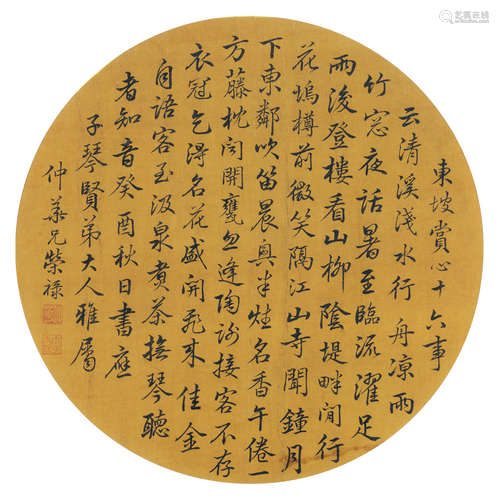 東坡賞心十六事
云清溪淺水行舟凉雨
竹窓夜話暑至臨流濯足
雨後登樓看山柳陰堤畔閒行
花塢樽前微笑隔江山寺聞鐘月
下東鄰吹笛晨興半炷名香午倦一
方藤枕開甕勿逢陶謝接客不存
衣冠乞得名花盛開飛來佳金
自語客至汲泉煮茶撫琴聽
者知音癸酉秋日書應
子琴賢弟大人雅屬
仲華兄榮祿